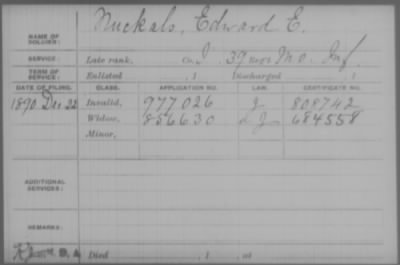 NAME OF SOLDIER: Nuckals, Edward E.
SERVICE: Late rank, Co. I, 39 Reg't Mo. Inf.
TERM OF SERVICE: Enlisted , 1 Discharged , 1
DATE OF FILING. CLASS. APPLICATION NO. LAW. CERTIFICATE NO.
1890 Dec 22 Invalid, 977026 J 808742
Widow, 856630 J 684558
Minor,
ADDITIONAL SERVICES:
REMARKS:
Died , 1 , at